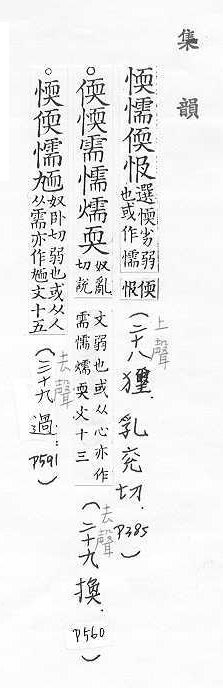 集韻
愞懦偄㤀選愞劣弱也或作懦偄㤀
(上聲二十八獮.乳兖切.P385)
。偄愞需懦燸耎奴亂切說文弱也或从心亦作需懦燸耎文十三
(去聲二十九換.P560)
。愞偄懦奴卧切弱也或从人从需亦作文十五
(去聲三十九過:P591)